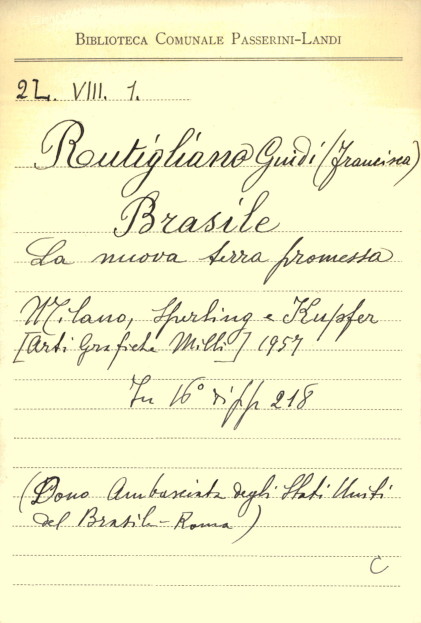 BIBLIOTECA COMUNALE PASSERINI-LANDI
2L. VIII. 1.
Rutigliano Guidi (Francisca)
Brasile
La nuova terra promessa
Milano, Sperling e Kupfer
[Arti Grafiche Milli] 1957
In 16° di pp 218
(Dono Ambasciata degli Stati Uniti
del Brasile-Roma)
C